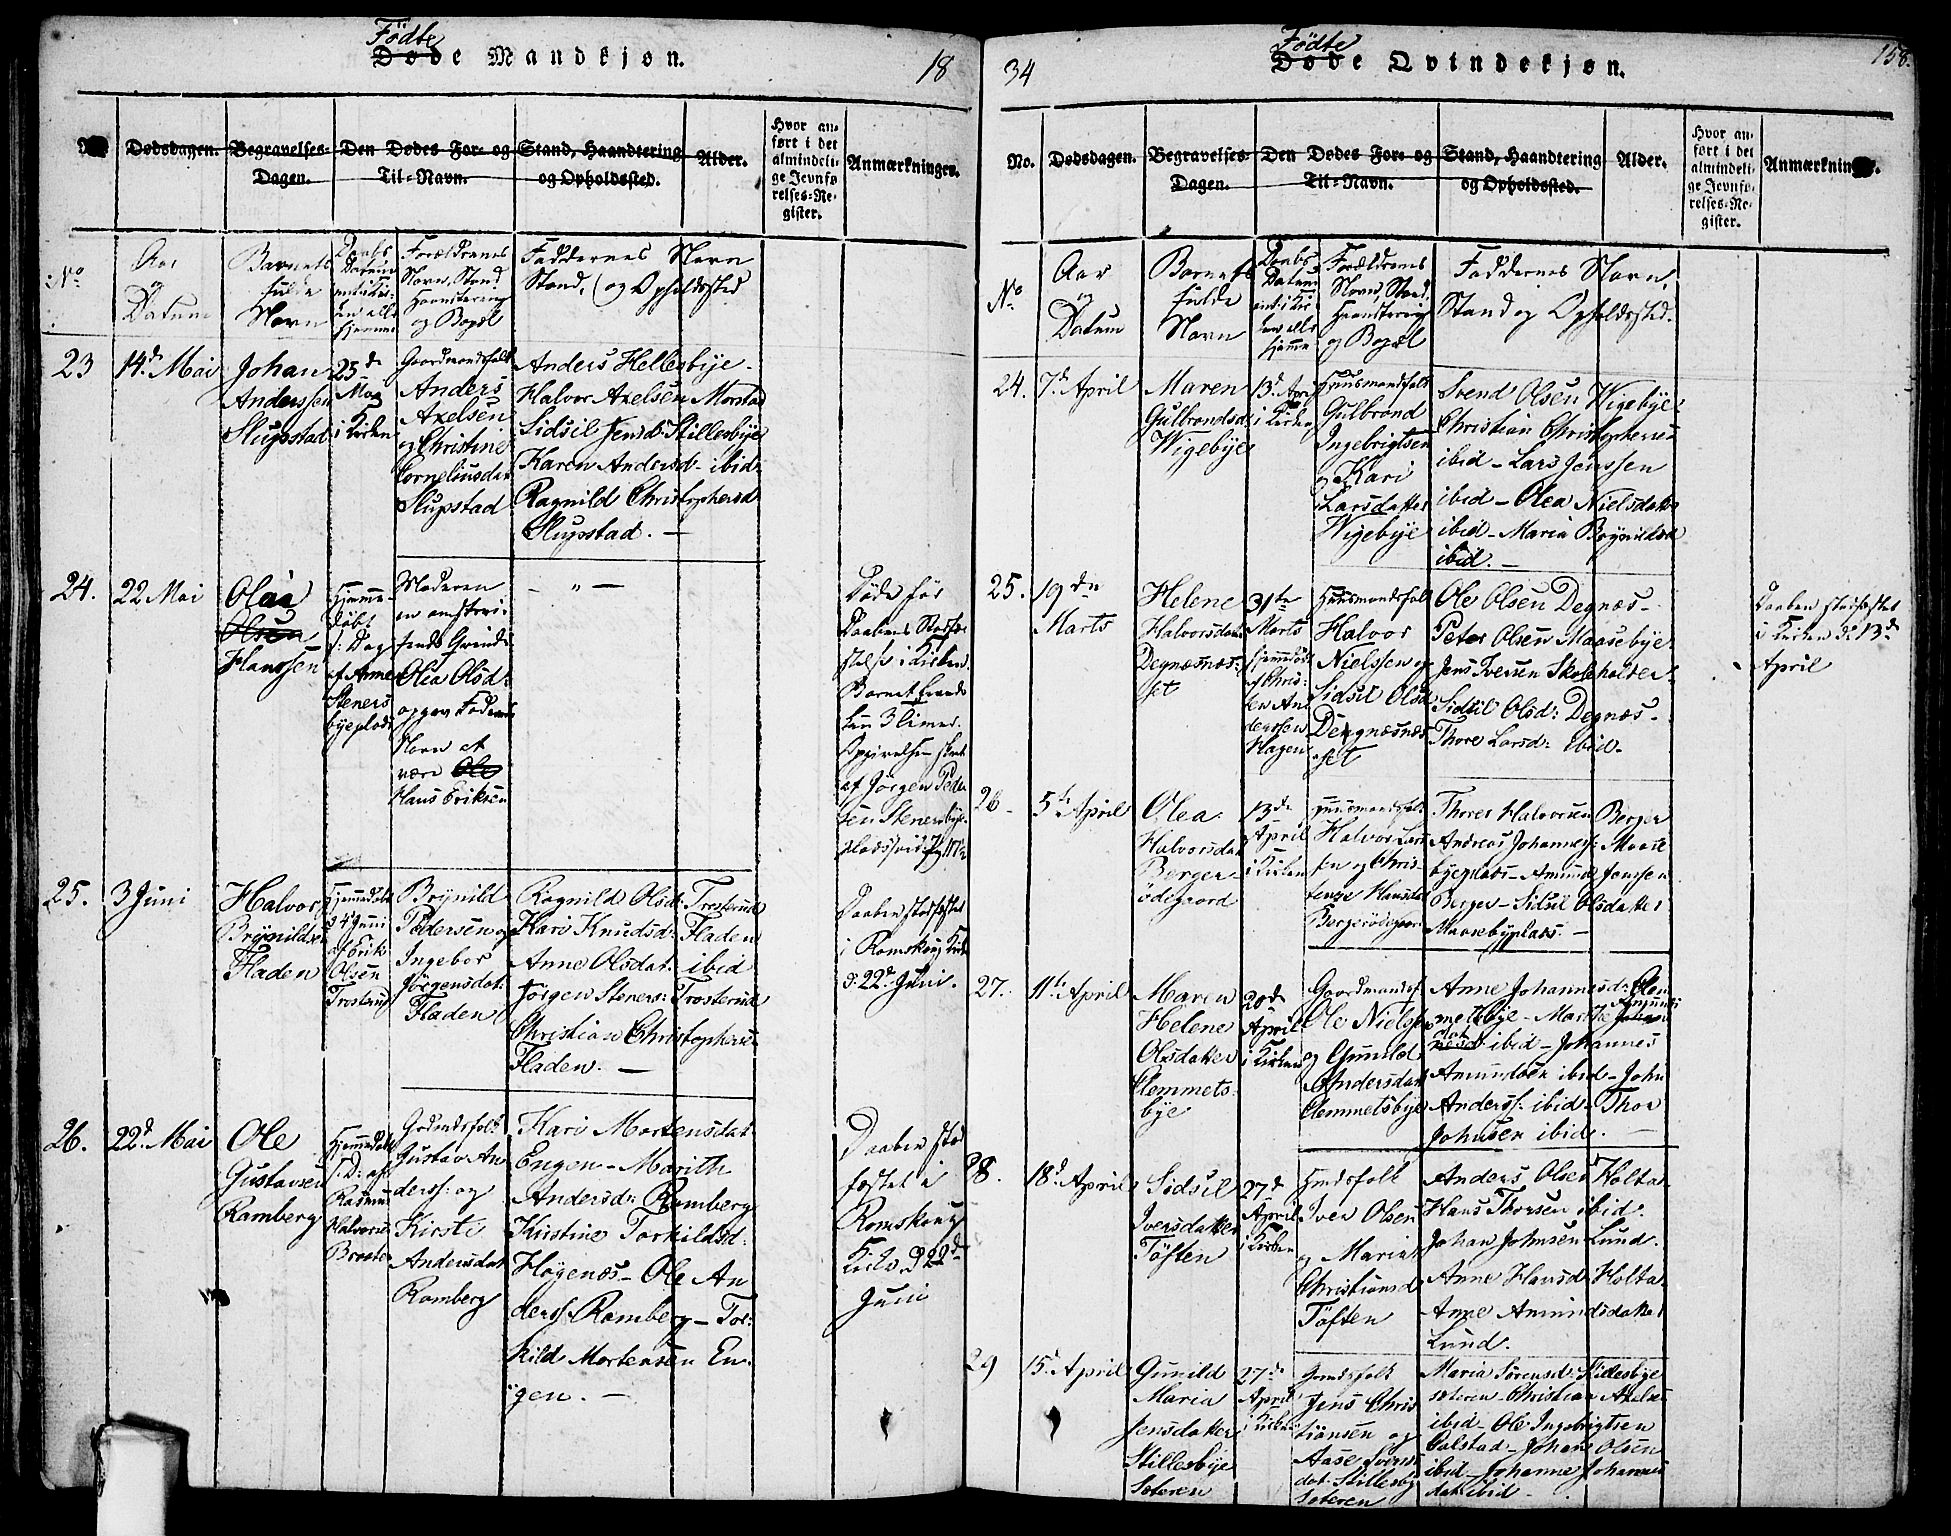 Fødte
Døde Mandkjøn.
18
Dødsdagen.
Begravelses-
Dagen.
Den Dødes For- og
Til-Navn.
Stand, Haandtering
og Opholdssted.
Alder.
Hvor an-
ført i det
almindeli-
ge Jevnfø-
relses-Re-
gister.
Anmærkninger.
No
Aar
og
Datum
Barnets
fulde
Navn
Daabs
Datum
Forældrenes
Navn, Stand
Haandtering
og Bopæl
Faddernes Navn
Stand, og Opholdssted
23
14d Mai
Johan
Anderssen
Slupstad
25de
Mai
i Kirken
Gaardmandsfolk
Anders
Axelsen
og Christine
Corneliusdat
Slupstad
Anders Hellesbye
Halvor Axelsen Morstad
Sidsil Jensd: Stillesbye
Karen Andersd- ibid
Ragnild Christophersd
Slupstad. —
24.
22 Mai
Olaa
Olsen
Hanssen
Hjemme-
døbt
s: Dag
af Anne
Steners
byeplads
Moderen
Olea Olsd:
opgav Faderens
Navn at
være Ole
Hans Eriksen
- " —
Døde før
Daabens Stadfæ
stelse i Kirken.
Barnet levede
kun 3 Timer.
af Jørgen Peder
sen Stenersbye-
25.
3 Juni
Halvor
Brynildsen
Fladen
Hjemmedøbt
d 4 Juni
af Erik
Olsen
Trosterud
Brynild
Pedersen og
Ingebor
Jørgensdat:
Fladen
Ragnild Olsd: Trosterud
Kari Knudsd: Fladen
Anne Olsdat. ibid
Jørgen Steners: Trosterud
Christian Christophers-
Fladen. —
Daaben stadfæstet
i Romskoug Kirke
d: 22d Juni.
26.
22d Mai
Ole
Gustavsen
Ramberg
Hjemmedøbt
s. D: af
Rasmus
Halvorsen
Braaten
Gustav An
derss: og
Kirsti
Andersdat
Ramberg
Kari Mortensdat
Engen - Marith
Andersd: Ramberg
Kirstine Torkildsd:
Høgenæs - Ole An
derss: Ramberg - Tor-
kild Mortensen En-
gen. —
Daaben stad
fæstet i
Romskoug
Kirke d 22d
Juni
34
Fødte
Døde Qvindekjøn.
158.
No.
Dødsdagen.
Begravelses-
Dagen.
Den Dødes For- og
Til-Navn.
Stand, Haandtering
og Opholdssted.
Alder.
Hvor an-
ført i det
almindeli-
ge Jevnfø-
relses-Re-
gister.
Anmærkninger.
No
Aar
og
Datum
Barnets
fulde
Navn
Daabs
Datum
Forældrenes
Navn, Stand,
Haandtering
og Bopæl
Faddernes Navn,
Stand og Opholdssted.
24.
7d April
Maren
Gulbrandsd
Wigebye
13d April
i Kirken
Huusmandsfolk
Gulbrand
Ingebrigtsen
og Kari
Larsdatter
Wigebye
Svend Olsen Wigebye
Christian Christophersen
ibid - Lars Jenssen
ibid - Olea Nielsdatter
ibid - Maria Brynildsd
ibid. -
25.
19den
Marts
Helene
Halvorsdat
Degnæsnæs-
set
31te
Marts
hjemmedøbt
af Chris-
ten An
derssen
Hagen
Huusmandsfolk
Halvor
Nielssen og
Sidsil Olsd
Degnæsnæs
set
Ole Olsen Degnæs-
Peter Olsen Maasebye
Jens Iversen Skoleholder-
Sidsil Olsd: Degnæs-
Thore Larsd: ibid-
Daaben stadfæstet
i Kirken d: 13de
April
26
5te April
Olea
Halvorsdat
Berger-
ødegaard
13de
April
i Kirken
Huusmandsfolk
Halvor Lars
sen og Chris-
tense Hansdat
Bergerødegaard
Thorer Halvorsen Berger
Andreas Johanness: Maase
byeplads - Amund Jonssen
Berger - Sidsil Olsdatter
Maasebyplads. -
27.
11te April
Maren
Helene
Olsdatter
Clemmets-
bye
20de
April
i Kirken
Gaardmandsf.
Ole Nielss
og Gunild
Andersdat
Clemmetsbye
Anne Johannesd: Clem
metsbye - Marthe Amunds
dat ibid - Johannes
Amundsen ibid - John
Anderss: ibid - Thor
Johnsen ibid. -
28.
18d April
Sidsil
Iversdatter
Toften
27de
April
i Kirken
Hmdsfolk
Iver Olsen
og Maria
Christiansd
Toften
Anders Olsen Holta
Hans Thorsen ibid.
Johan Johnsen Lund.
Anne Hansd Holta
Anne Amundsdatter
Lund.
29
15. April
Gunild
Maria
Jensdatter
Stillesbye
Sæteren
27de
April
i Kirken
Grmdsfolk
Jens Chris
tiansen og
Aase Svens
dat. Stillesby
sæteren
Maria Sørensd: Stillesbye
sæteren - Christian Axels
ibid - Ole Ingebrigtsen
Galstad - Johan Olsen
ibid - Johanne Johannes
dat ibid -